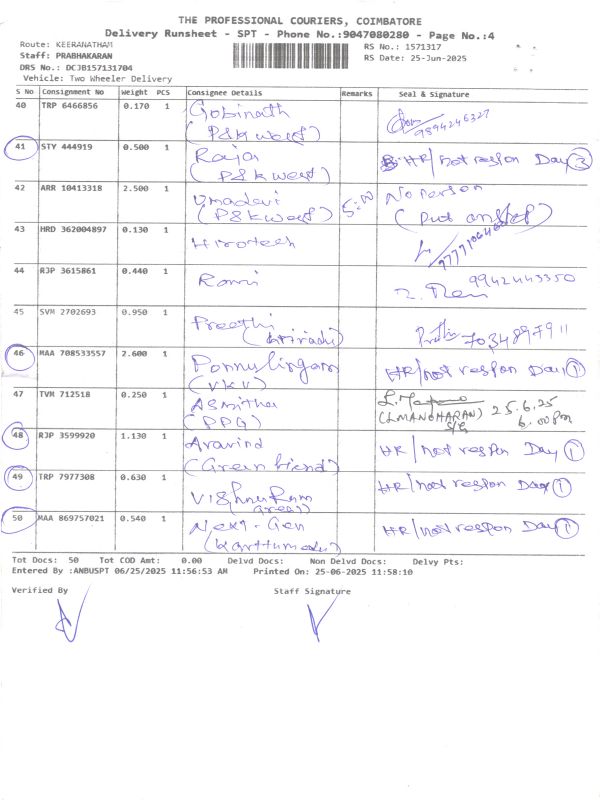 THE PROFESSIONAL COURIERS, COIMBATORE
Delivery Runsheet - SPT - Phone No.:9047080280 - Page No.:4
Route: KEERANATHAM RS No.: 1571317
Staff: PRABHAKARAN RS Date: 25-Jun-2025
DRS No.: DCJB157131704
Vehicle: Two Wheeler Delivery
S No Consignment No Weight PCS Consignee Details Remarks Seal & Signature
40 TRP 6466856 0.170 1 Gobinath
(P&K west) 9894246327
41 STY 444919 0.500 1 Raja HR/not respon Day 3
(P&K west)
42 ARR 10413318 2.500 1 Umadevi No Person
(P&K west)
43 HRD 362004897 0.130 1 Hirotech
44 RJP 3615861 0.440 1 9942443350
45 SVM 2702693 0.950 1 Preethi
7034897911
46 MAA 708533557 2.600 1 Ponnulingam HR/not respon Day 1
(VKV)
47 TVM 712518 0.250 1 Asmitha (L.MANOHARAN) 25.6.25
(PPG) 6.00pm
48 RJP 3599920 1.130 1 Aravind HR/not respon Day 1
(Green
49 TRP 7977308 0.630 1 Vishnu Ram HR/not respon Day 1
50 MAA 869757021 0.540 1 Next-Gen HR/not respon Day 1
Tot Docs: 50 Tot COD Amt: 0.00 Delvd Docs: Non Delvd Docs: Delvy Pts:
Entered By :ANBUSPT 06/25/2025 11:56:53 AM Printed On: 25-06-2025 11:58:10
Verified By Staff Signature